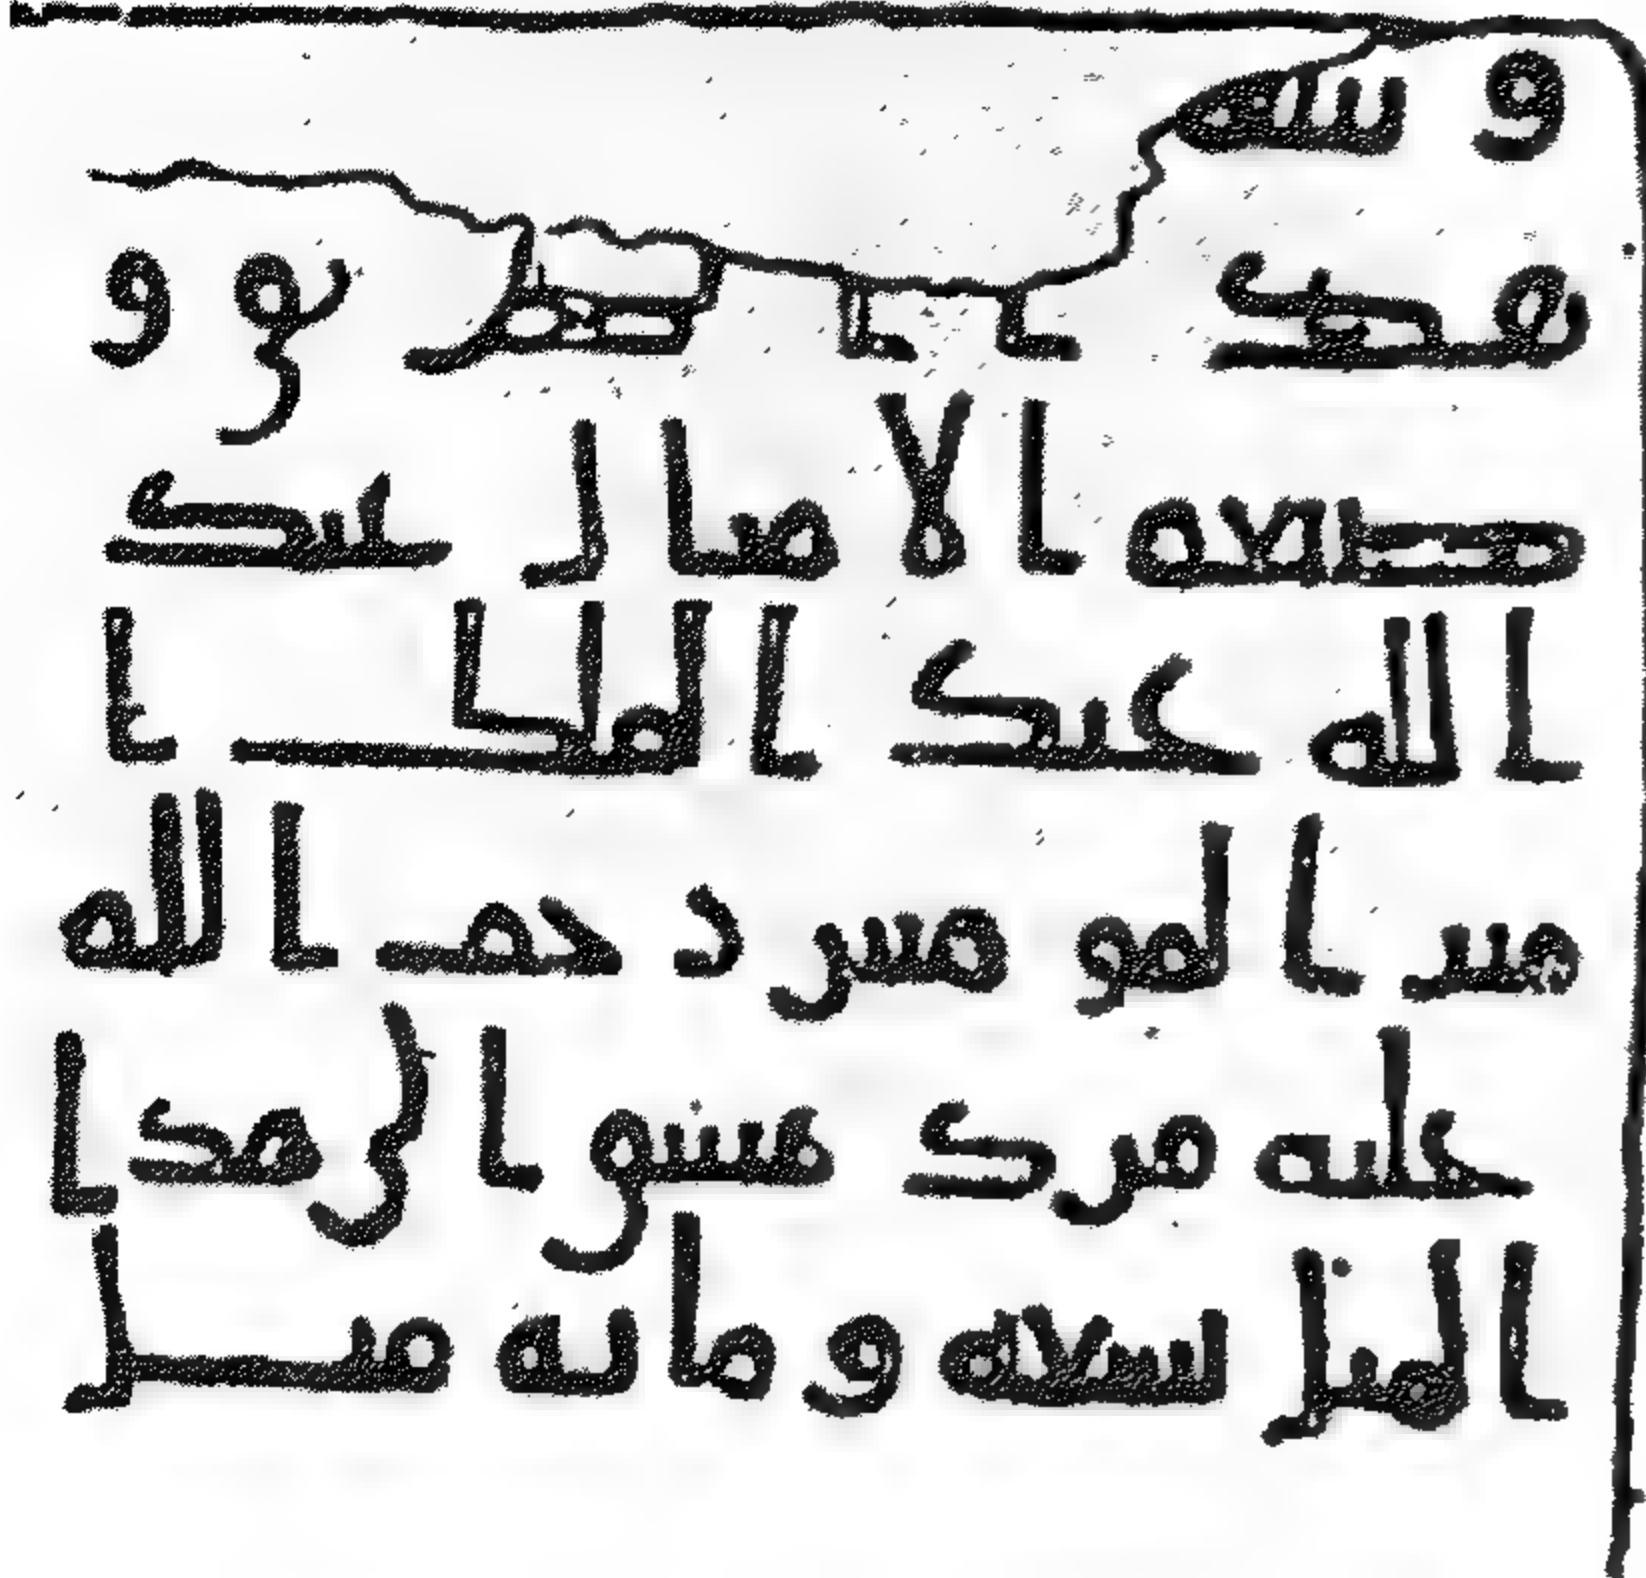 وسلم
هذا الطريق و
صنعة الاميال عبد
الله عبد الملك ا
مير المومنين رحمت الله
عليه من دمشق الى هذا
الميل تسعة ومائة ميل